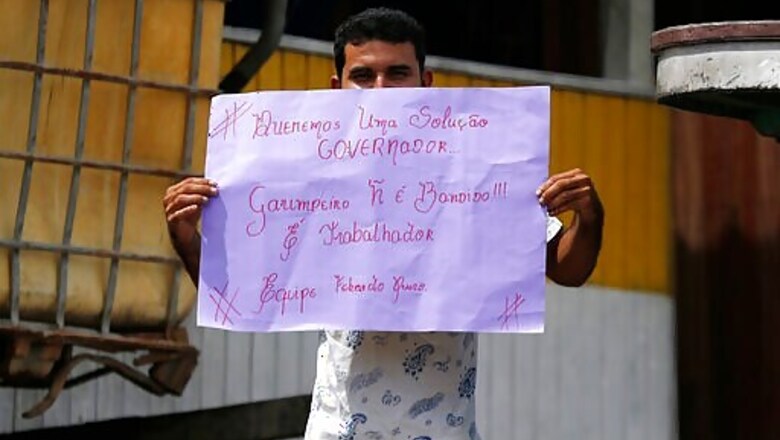 # Queremos Uma Solução
GOVERNADOR...
Garimpeiro Ñ é Bandido!!!
É Trabalhador
Equipe
# #